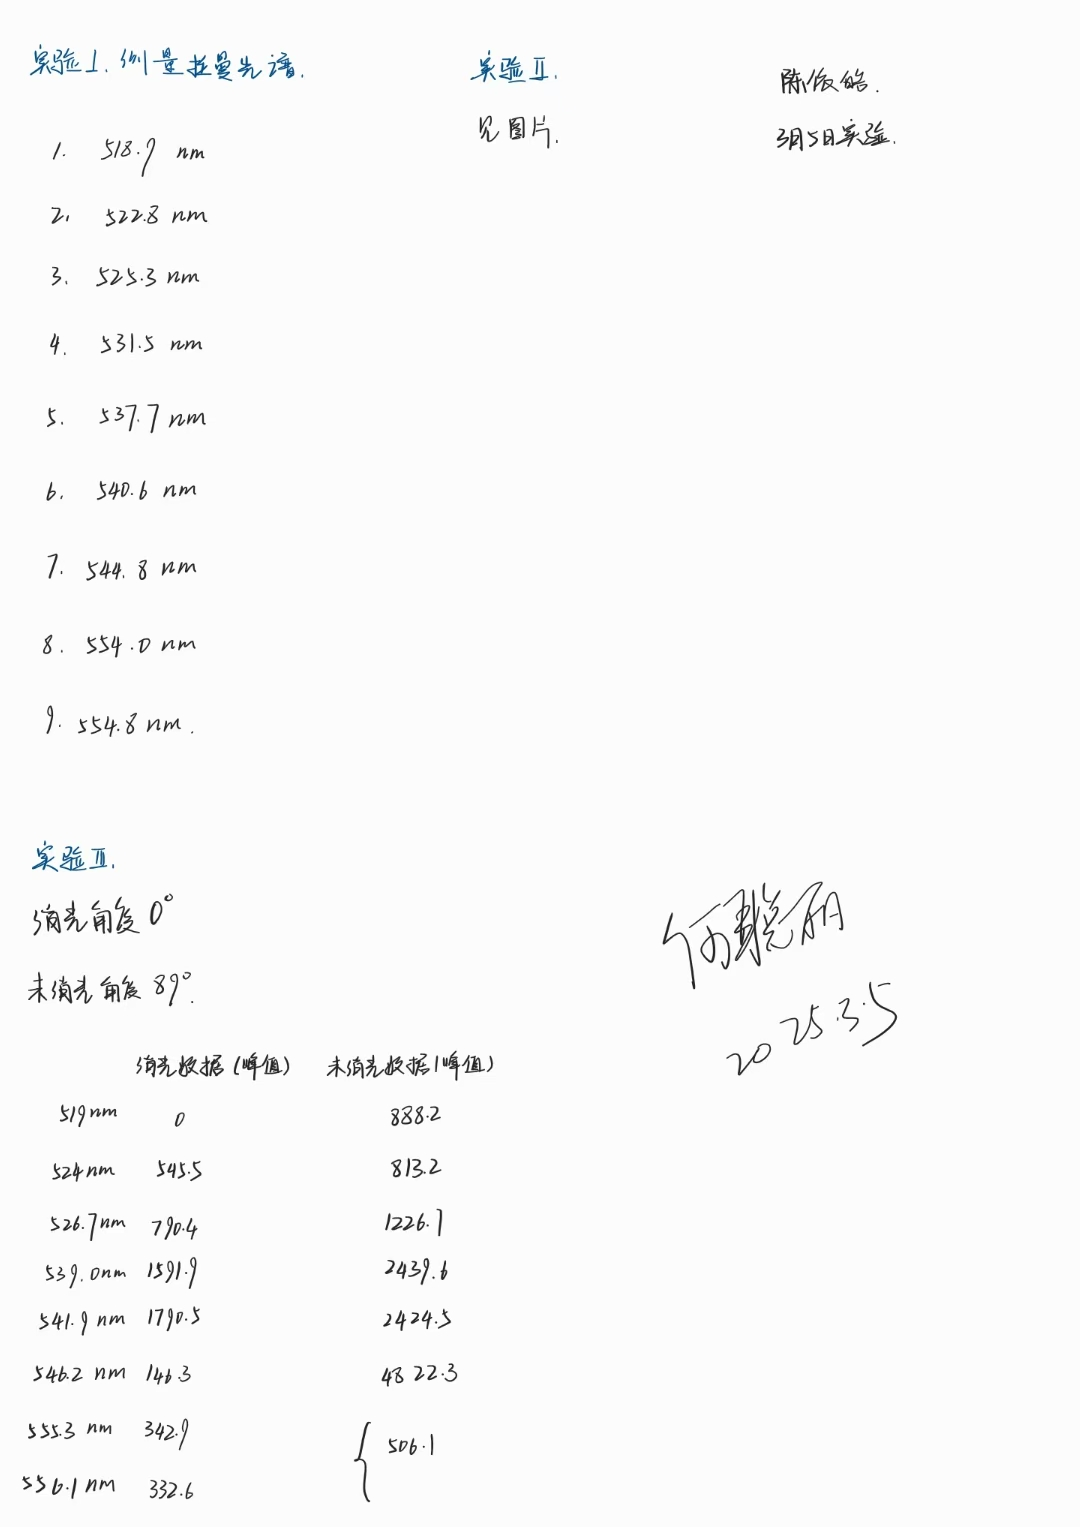 实验Ⅰ.测量拉曼光谱.
1. 518.9 nm
2. 522.8 nm
3. 525.3 nm
4. 531.5 nm
5. 537.7 nm
6. 540.6 nm
7. 544.8 nm
8. 554.0 nm
9. 554.8 nm.
实验Ⅱ.
见图片.
陈
3月5日实验.
实验Ⅲ.
消光角度 0°
未消光角度 89°.
消光数据(峰值) 未消光数据(峰值)
519nm 0 888.2
524nm 545.5 813.2
526.7nm 790.4 1226.7
539.0nm 1591.9 2439.6
541.9 nm 1790.5 2424.5
546.2 nm 146.3 4822.3
555.3 nm 342.9 { 506.1
556.1 nm 332.6
何聪丽
2025.3.5